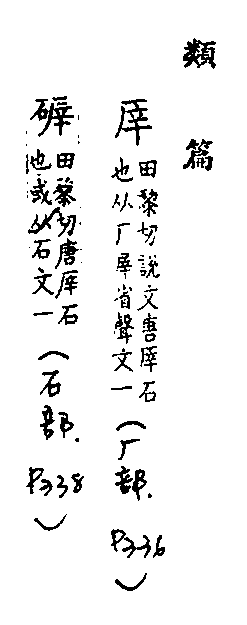 類篇
厗 田黎切說文唐厗石
也从厂屖省聲文一 (厂部. P336)
田黎切唐厗石
也或从石文一 (石部. P338)